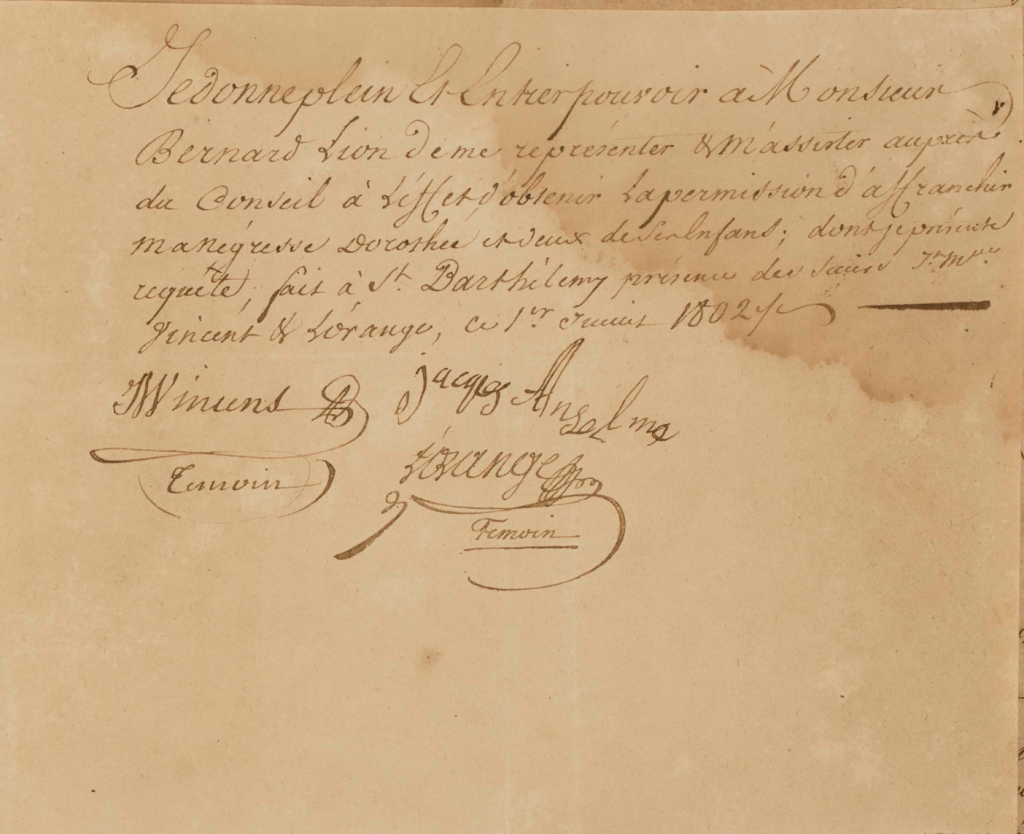 Je donne plein Et Entier pouvoir à Monsieur
Bernard Lion de me représenter & M'assister auprès
du Conseil à L'effet d'obtenir La permission d'affranchir
ma négresse Dorothée et deux de ses Enfans; dont je présente
requête, fait à St. Barthélemy présence des Sieurs
Vincent & Lorange, ce 1er 1802
JWincens Jacques Anselme
Lorange
Temoin Temoin